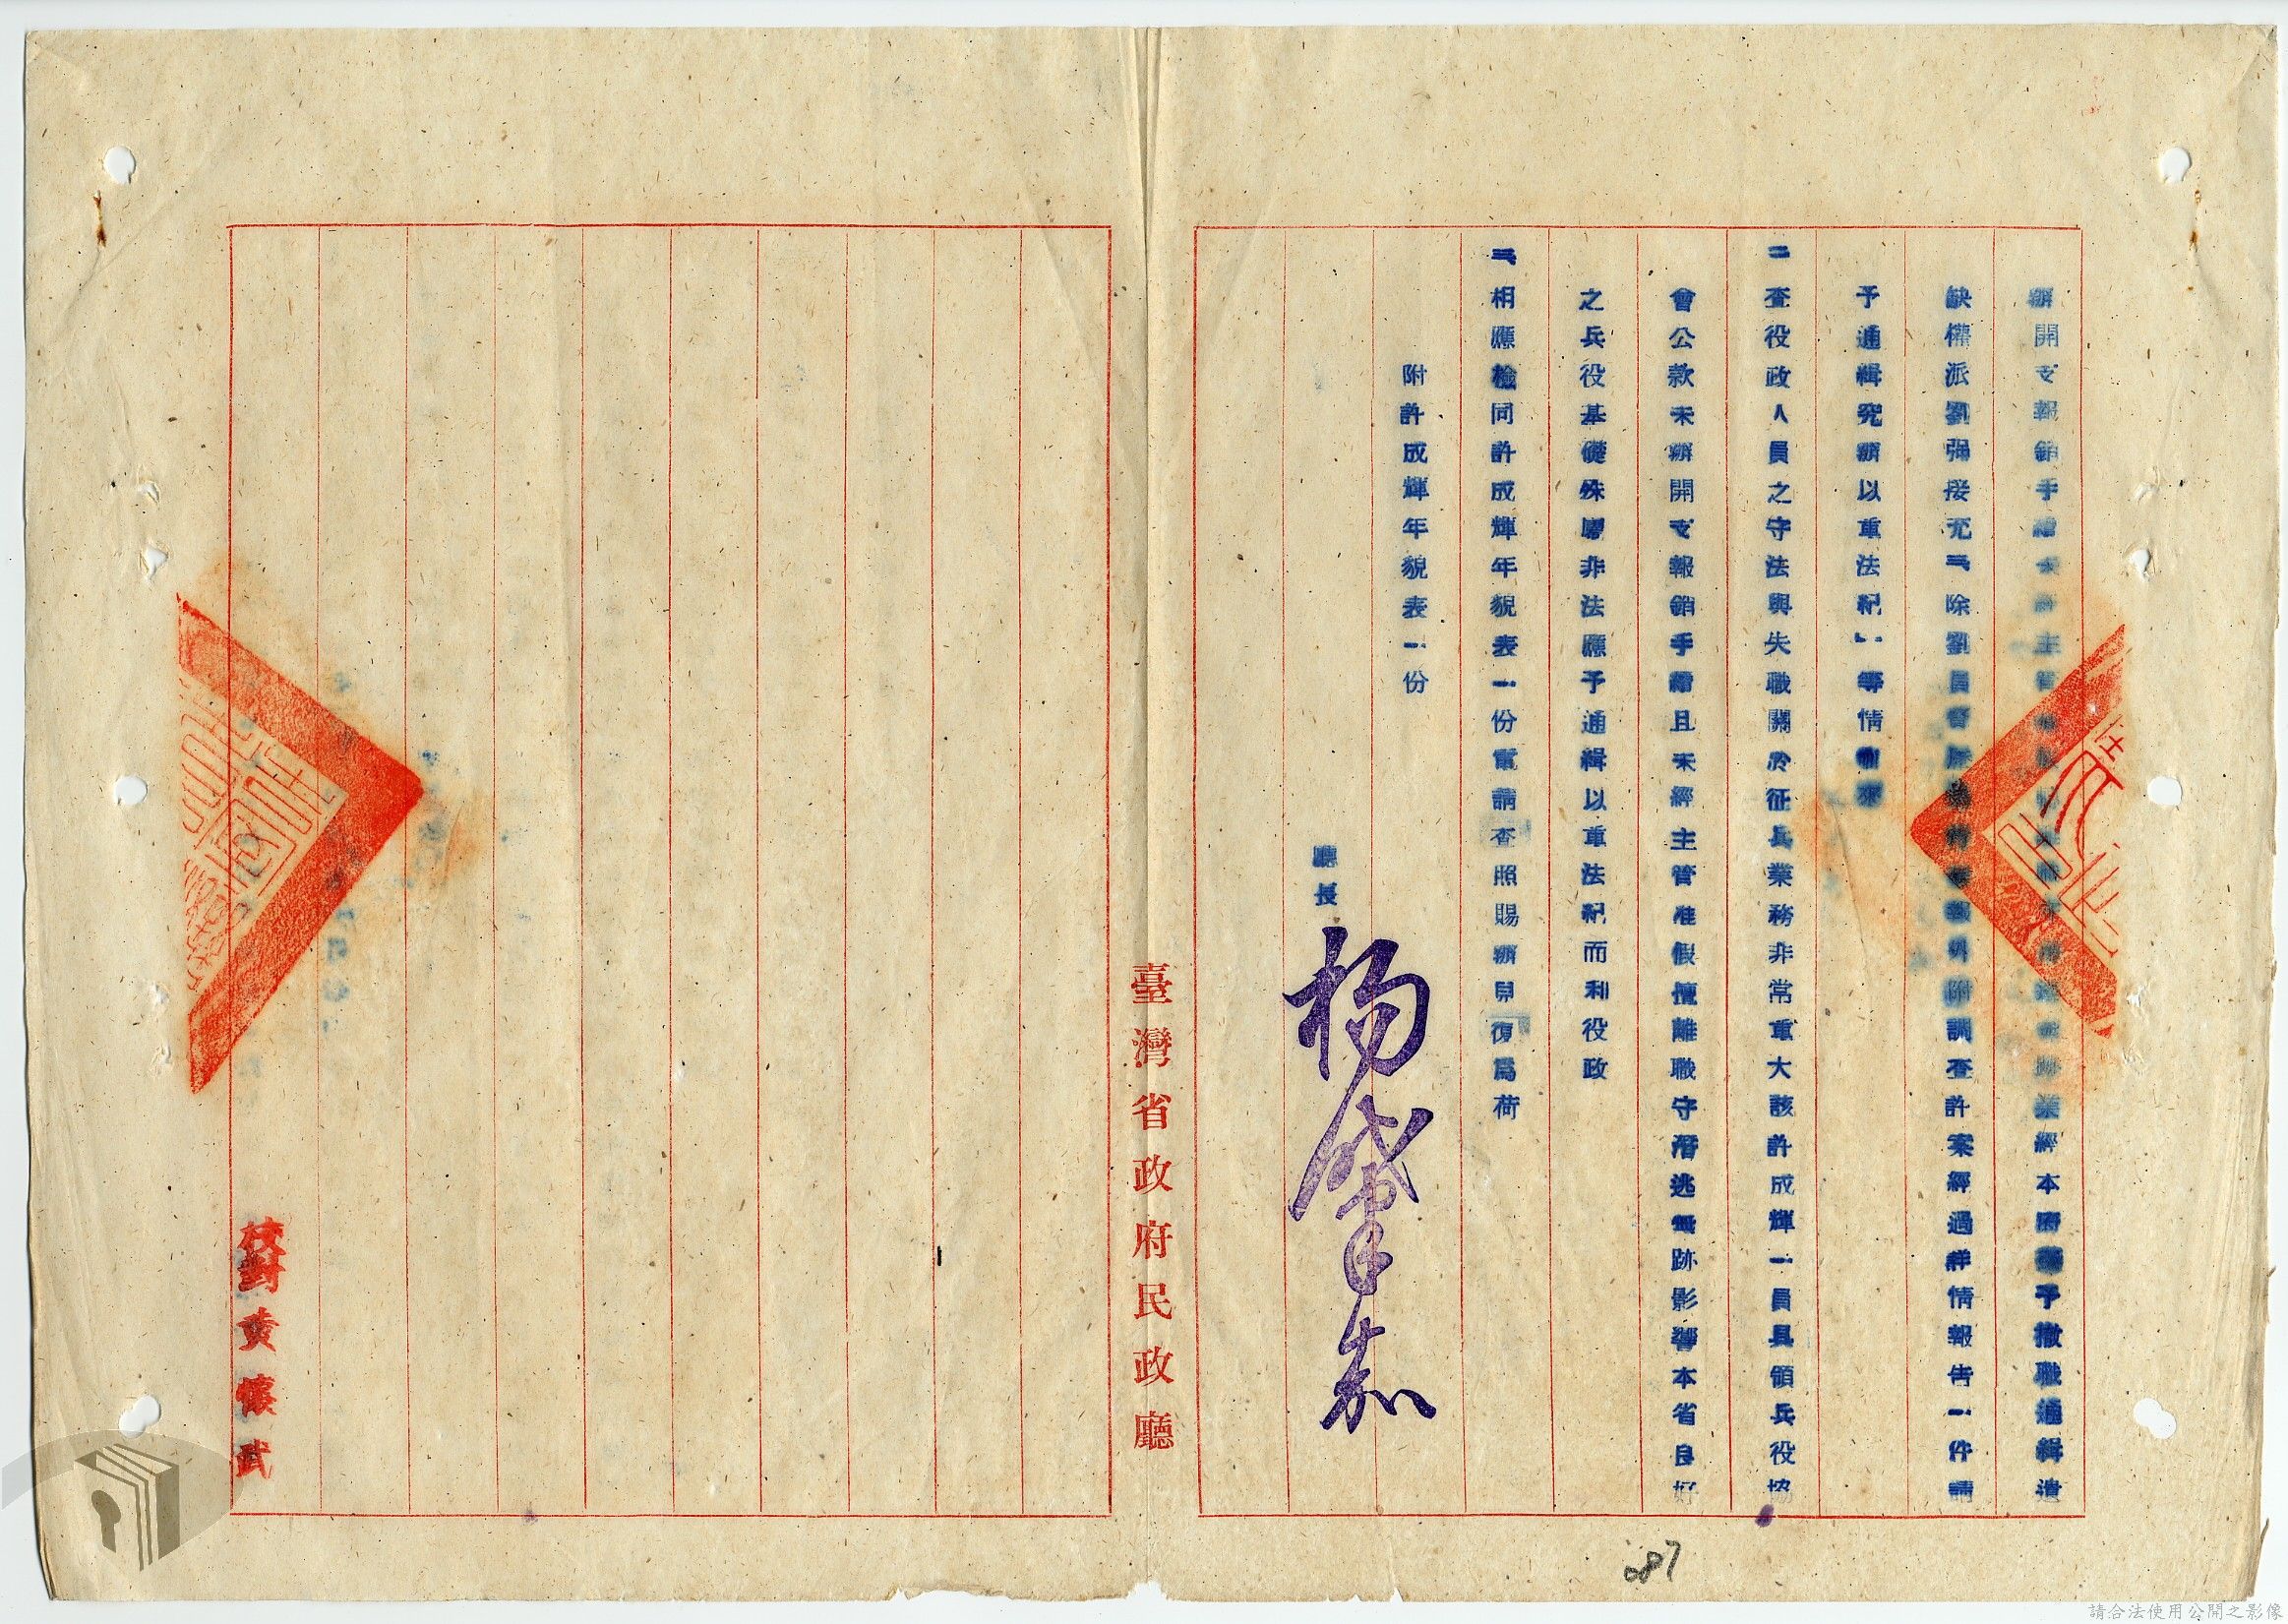 辦開支報銷手續未經主管 業經本府予撤職通緝遺
缺權派劉强接充三、除劉員 附調查許案經過詳情報告一件請
予通緝究辦以重法紀」等情前來
二查役政人員之守法與失職關於征兵業務非常重大該許成輝一員具領兵役協
會公款未辦開支報銷手續且未經主管准假擅離職守潛逃無跡影響本省良好
之兵役基礎殊屬非法應予通緝以重法紀而利役政
三、相應檢同許成輝年貌表一份電請查照賜辦見復爲荷
附許成輝年貌表一份
廳長 楊肇嘉
臺灣省政府民政廳
校對黃懷武
087
請合法使用公開之影像